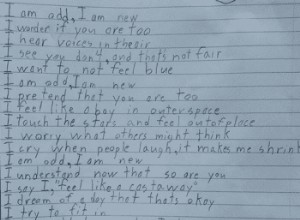 I am odd, I am new
I wonder if you are too
I hear voices in the air
I see you don't, and that's not fair
I want to not feel blue
I am odd, I am new
I pretend that you are too
I feel like a boy in outerspace
I touch the stars and feel out of place
I worry what others might think
I cry when people laugh, it makes me shrink
I am odd, I am new
I understand now that so are you
I say I, "feel like a castaway"
I dream of a day that thats okay
I try to fit in